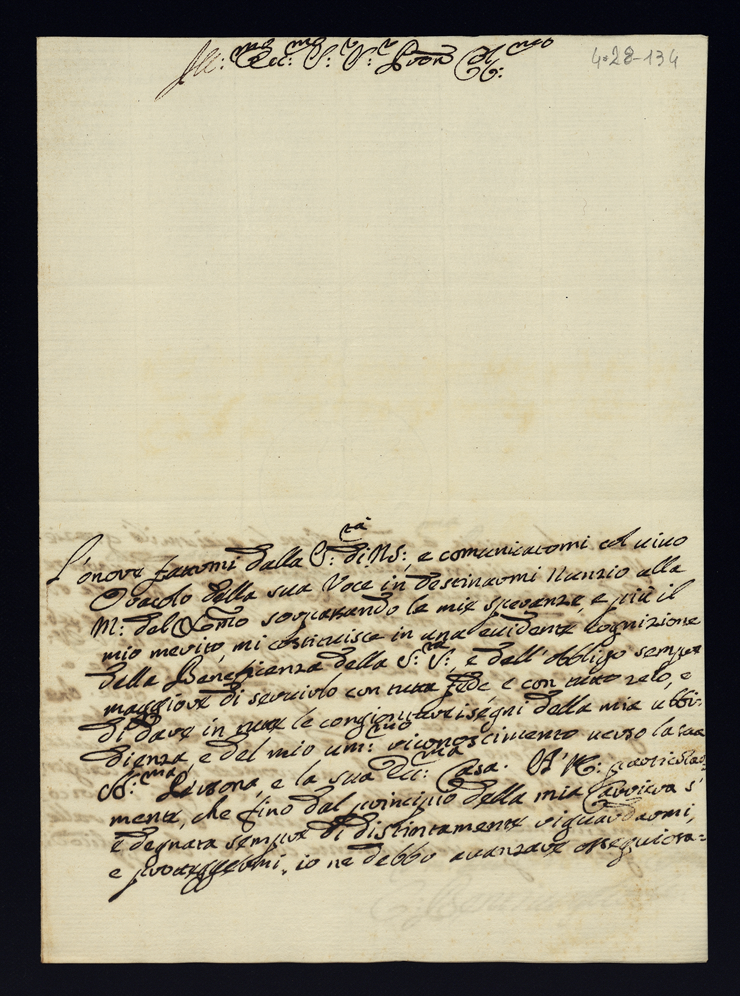 Ill:mo Ecc:mo S:r S:r Pron Col:mo
4.28-134
L'onore fattomi dalla S:tà di N.S:, e comunicatomi col vivo
Oracolo della sua Voce in destinarmi Nunzio alla
M: del Xmo sorpassando le mie speranze, e più il
mio merito, mi costituisce in una evidente cognizione
della Beneficenza della S:tà S:, e dell'Obligo sempre
maggiore di servirlo con tutta fede, e con tutto zelo, e
di dare in tutte le congionture i segni della mia ubbi-
dienza, e del mio um:mo riconoscimento verso la sua
S:ma Persona, e la sua Ecc:ma Casa. A V.E: particolar=
mente, che fino dal principio della mia Carriera s'
è degnata sempre di distintamente riguardarmi,
e proteggermi, io ne debbo avanzare ossequiosa=